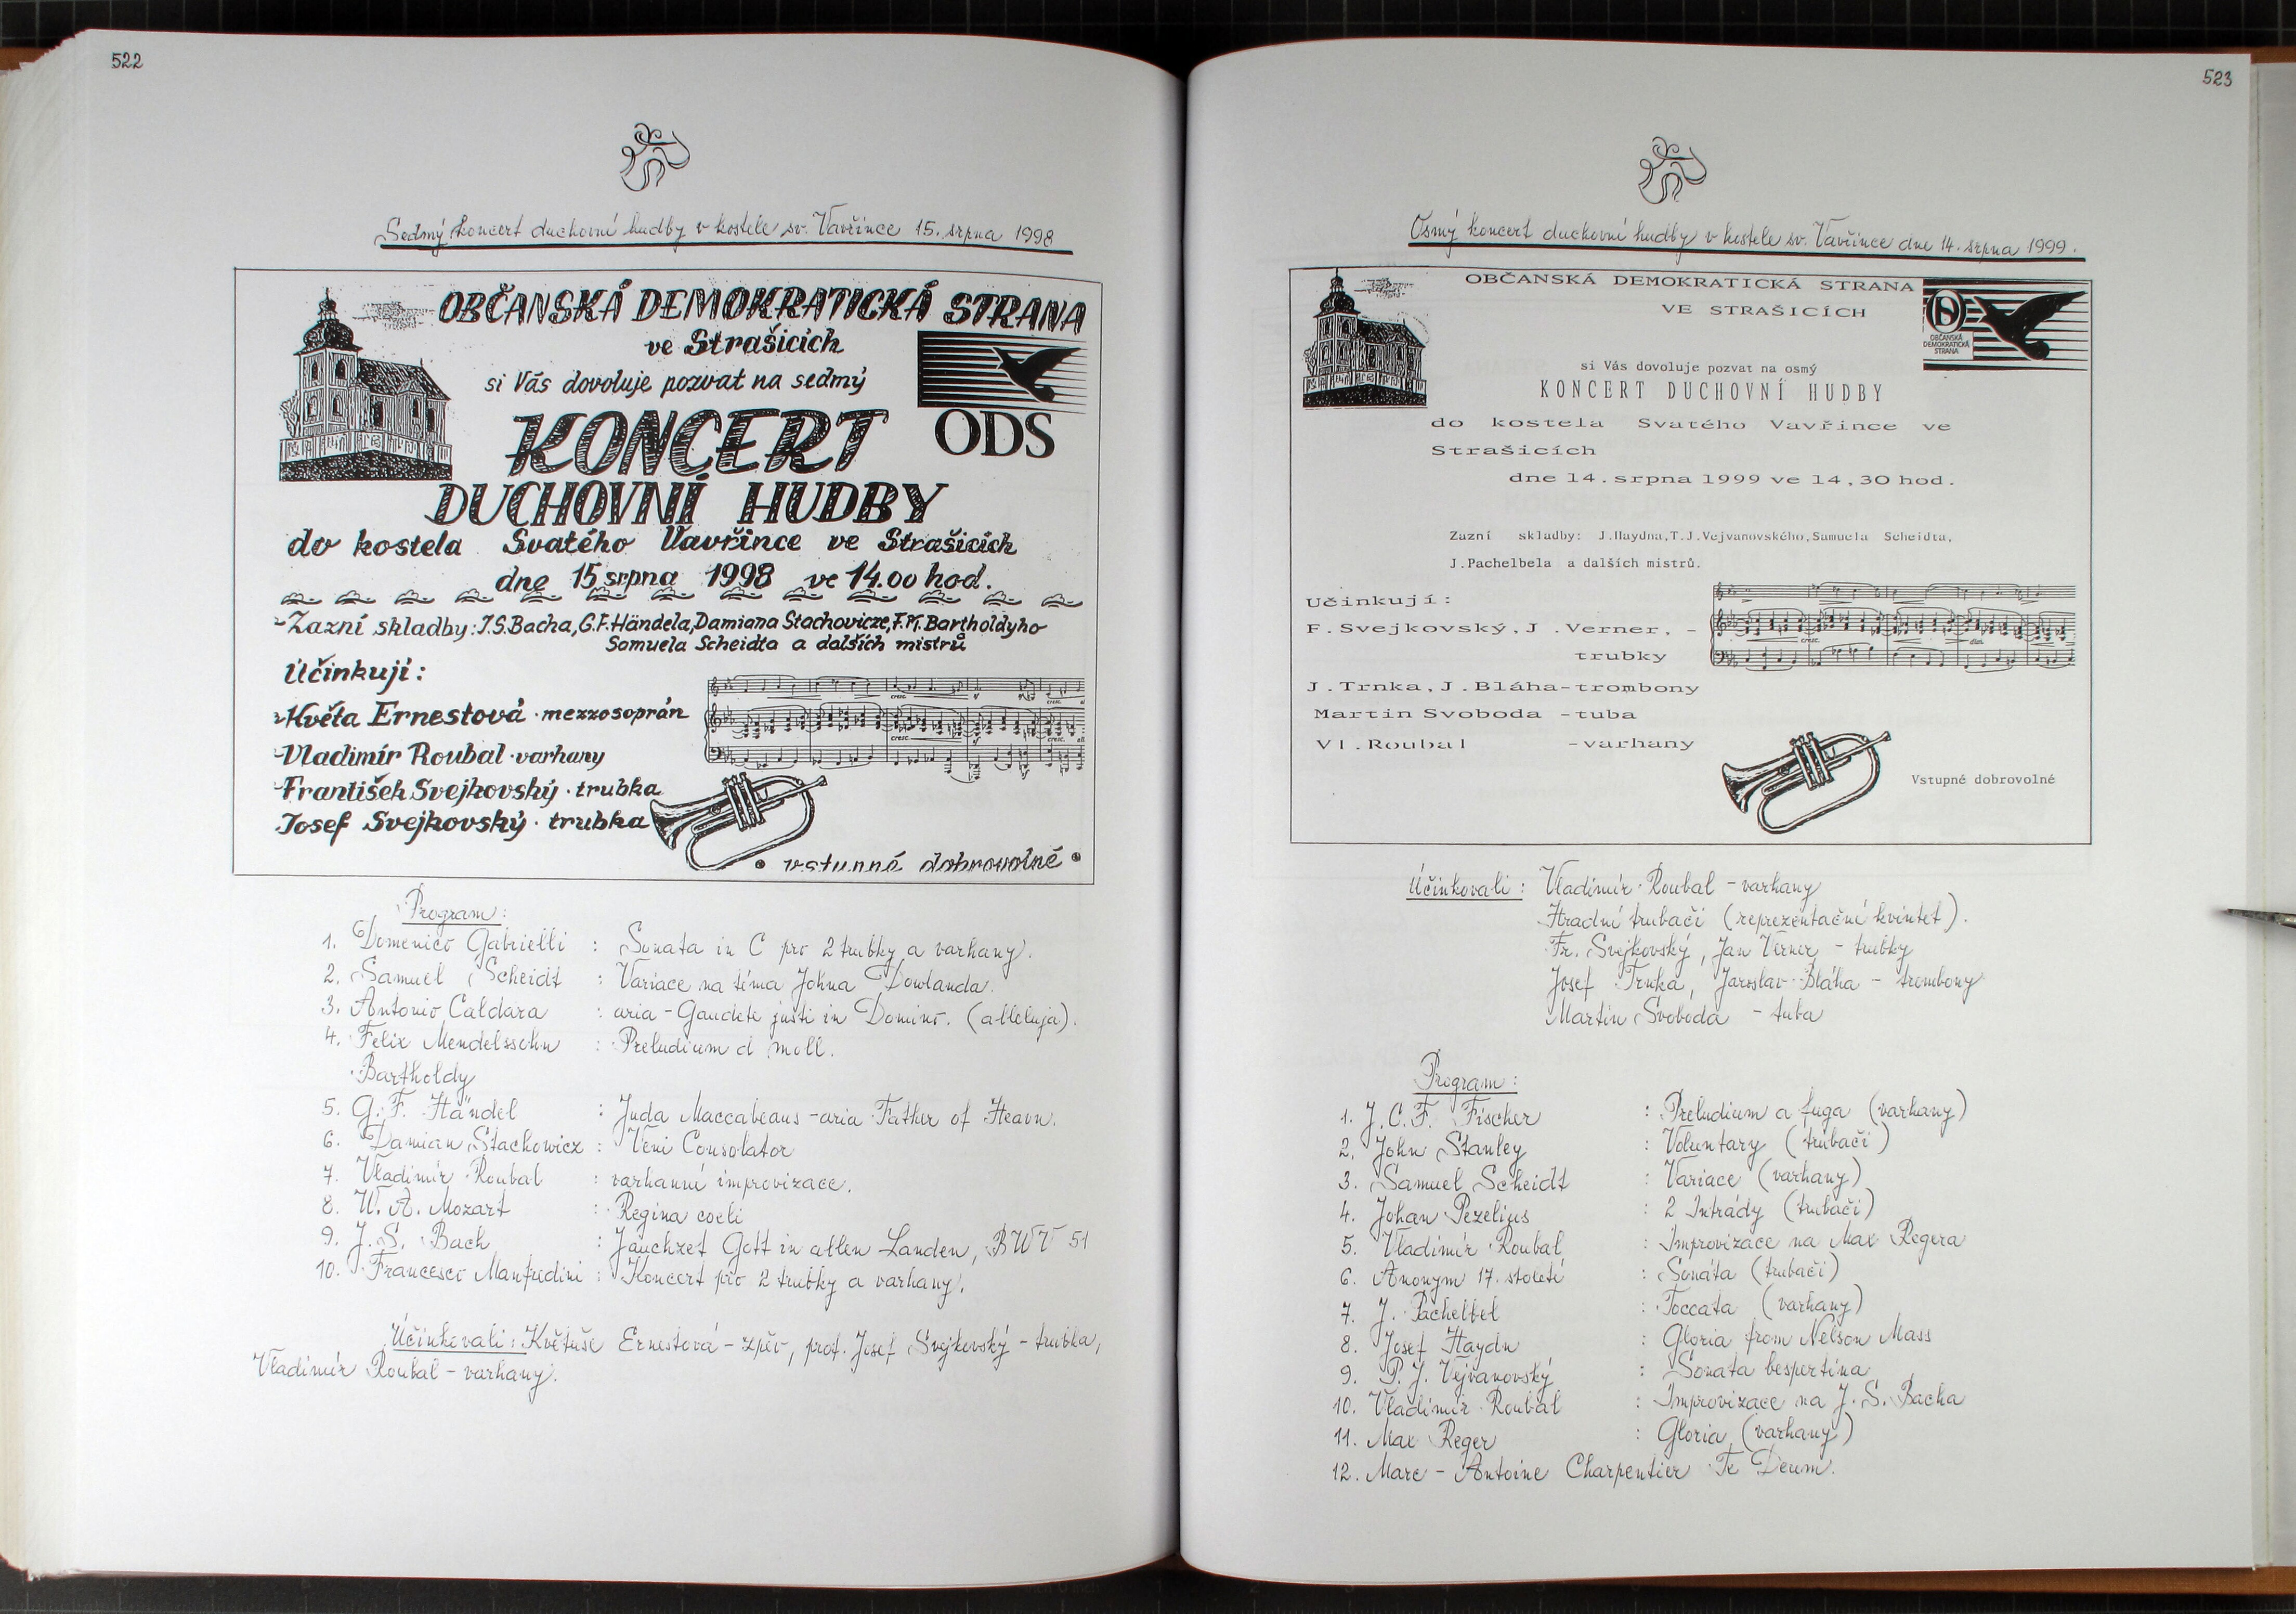 522
Sedmý koncert duchovní hudby v kostele sv. Vavřince 15. srpna 1998
OBČANSKÁ DEMOKRATICKÁ STRANA
ve Strašicích
si Vás dovoluje pozvat na sedmý
KONCERT
ODS
DUCHOVNÍ HUDBY
do kostela Svatého Vavřince ve Strašicích
dne 15 srpna 1998 ve 14.00 hod.
Zazní skladby: J.S.Bacha, G.F.Händela, Damiana Stachovicze, F.M.Bartholdyho
Samuela Scheidta a dalších mistrů
Účinkují:
Květa Ernestová - mezzosoprán
Vladimír Roubal - varhany
František Svejkovský - trubka
Josef Svejkovský - trubka
• vstupné dobrovolné •
Program:
1. Domenico Gabrielli : Sonata in C pro 2 trubky a varhany.
2. Samuel Scheidt : Variace na téma Johna Dowlanda.
3. Antonio Caldara : aria - Gaudete justi in Domino. (alleluja).
4. Felix Mendelssohn : Preludium d moll.
Bartholdy
5. G. F. Händel : Juda Maccabeaus - aria Father of Heavn.
6. Damian Stachowicz : Veni Consolator
7. Vladimír Roubal : varhanní improvizace.
8. W. A. Mozart : Regina coeli
9. J. S. Bach : Jauchzet Gott in allen Landen, BWV 51
10. Francesco Manfredini : Koncert pro 2 trubky a varhany.
Účinkovali: Květuše Ernestová - zpěv, prof. Josef Svejkovský - trubka,
Vladimír Roubal - varhany.
523
Osmý koncert duchovní hudby v kostele sv. Vavřince dne 14. srpna 1999.
OBČANSKÁ DEMOKRATICKÁ STRANA
VE STRAŠICÍCH
OBČANSKÁ
DEMOKRATICKÁ
STRANA
si Vás dovoluje pozvat na osmý
KONCERT DUCHOVNÍ HUDBY
do kostela Svatého Vavřince ve
Strašicích
dne 14.srpna 1999 ve 14,30 hod.
Zazní skladby: J.Haydna,T.J.Vejvanovského,Samuela Scheidta,
J.Pachelbela a dalších mistrů.
Učinkují:
F.Svejkovský,J.Verner, -
trubky
J.Trnka,J.Bláha-trombony
Martin Svoboda -tuba
Vl.Roubal -varhany
Vstupné dobrovolné
Účinkovali: Vladimír Roubal - varhany
Hradní trubači (reprezentační kvintet).
Fr. Svejkovský, Jan Verner - trubky
Josef Trnka, Jaroslav Bláha - trombony
Martin Svoboda - tuba
Program:
1. J. C. F. Fischer : Preludium a fuga (varhany)
2. John Stanley : Voluntary (trubači)
3. Samuel Scheidt : Variace (varhany)
4. Johan Pezelius : 2 Intrády (trubači)
5. Vladimír Roubal : Improvizace na Max Regera
6. Anonym 17. století : Sonáta (trubači)
7. J. Pachelbel : Toccata (varhany)
8. Josef Haydn : Gloria from Nelson Mass
9. P. J. Vejvanovský : Sonata bespertina
10. Vladimír Roubal : Improvizace na J. S. Bacha
11. Max Reger : Gloria (varhany)
12. Marc - Antoine Charpentier Te Deum.